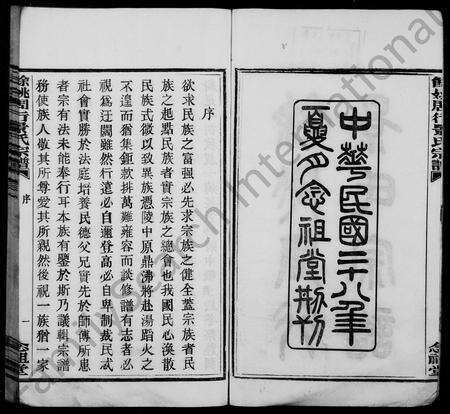 中華民國二十八年
夏月念祖堂刊
序
欲求民族之富强必先求宗族之健全蓋宗族者民
族之起點民族者實宗族之總會也我國民心渙散
民族式微以致異族憑陵中原鼎沸將赴湯蹈火之
不遑而猶集鉅款排萬難雍容而談修譜有志者必
視爲迂闊雖然行遠必自邇登高必自卑制裁民武
社會實勝於法庭培養民德父兄實先於師傅所患
者宗有法未能奉行耳本族有鑒於斯乃議輯宗譜
務使族人敬其所尊愛其所親然後視一族猶一家
餘姚周行
氏宗譜
序
一
念祖堂
FamilySearch International